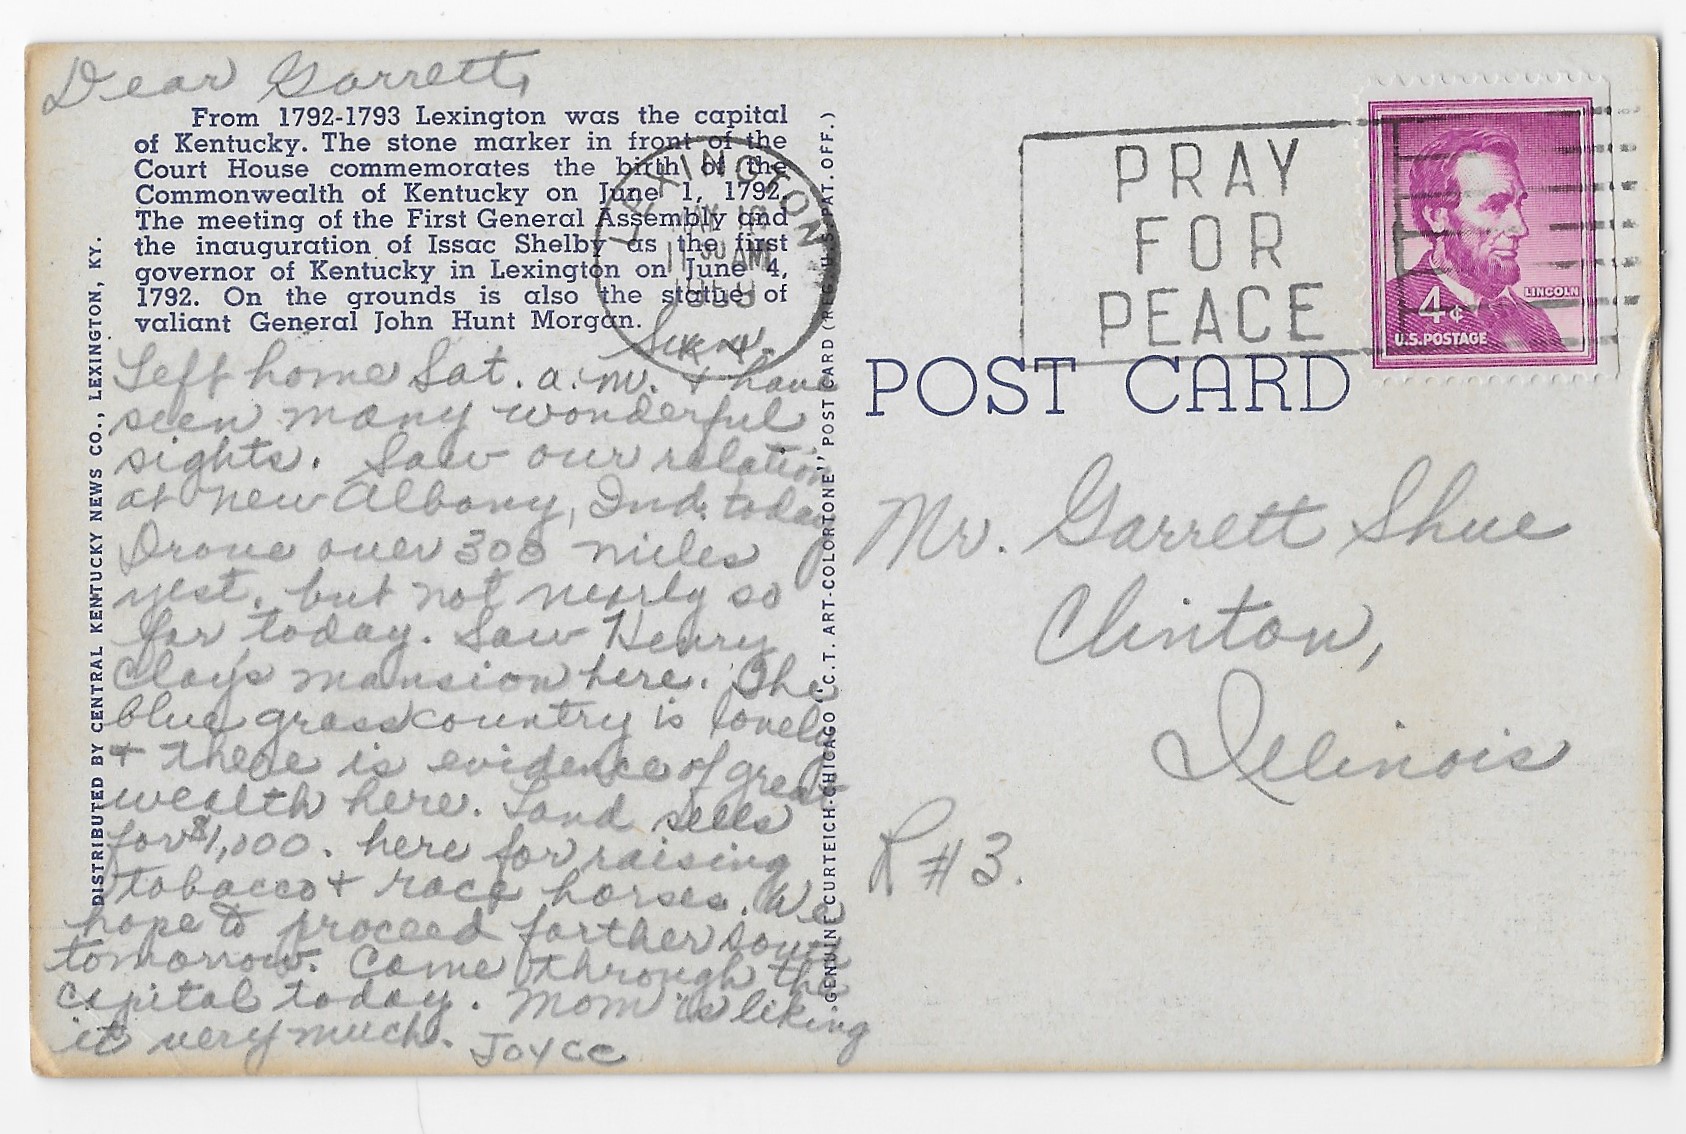 Dear Garrett,
From 1792-1793 Lexington was the capital
of Kentucky. The stone marker in front of the
Court House commemorates the birth of the
Commonwealth of Kentucky on June 1, 1792.
The meeting of the First General Assembly and
the inauguration of Issac Shelby as the first
governor of Kentucky in Lexington on June 4,
1792. On the grounds is also the statue of
valiant General John Hunt Morgan.
Sun.
Left home Sat. a.m. & have
seen many wonderful
sights. Saw our relation
at New Albany, Ind. today
Drove over 300 miles
yest. but not nearly so
far today. Saw Henry
Clay's mansion here. The
blue grass country is lovely
+ there is evidence of great
wealth here. Land sells
for $1,000. here for raising
tobacco + race horses. We
hope to proceed farther south
tomorrow. Came through the
capital today. Mom is liking
it very much. Joyce
DISTRIBUTED BY CENTRAL KENTUCKY NEWS CO., LEXINGTON, KY.
GENUINE CURTEICH-CHICAGO "C.T. ART-COLORTONE" POST CARD (REG. U.S. PAT. OFF.)
LEXINGTON
11 30 AM
KY.
PRAY
FOR
PEACE
LINCOLN
4¢
U.S. POSTAGE
POST CARD
Mr. Garrett Shue
Clinton,
Illinois
R #3.